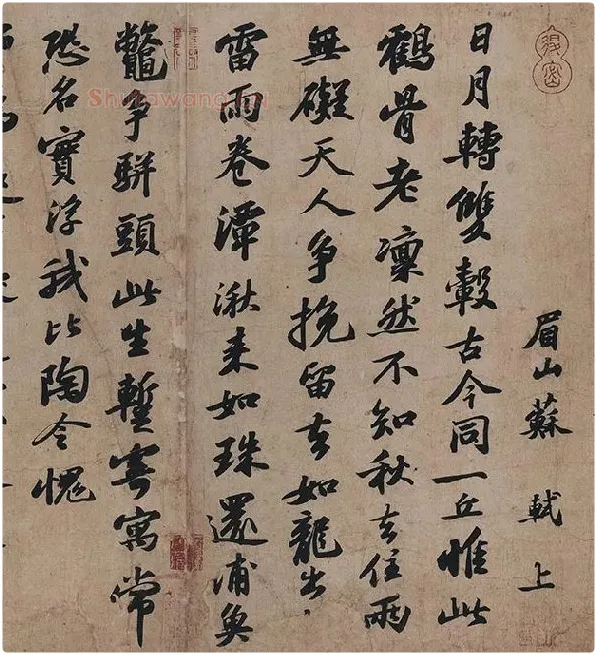 眉山蘇軾上
日月轉雙轂古今同一丘惟此
鶴骨老凛然不知秋去住兩
無礙天人争挽留去如龍出
雷雨卷潭湫来如珠還浦魚
鼈争駢頭此生暫寄寓常
恐名實浮我比陶令愧